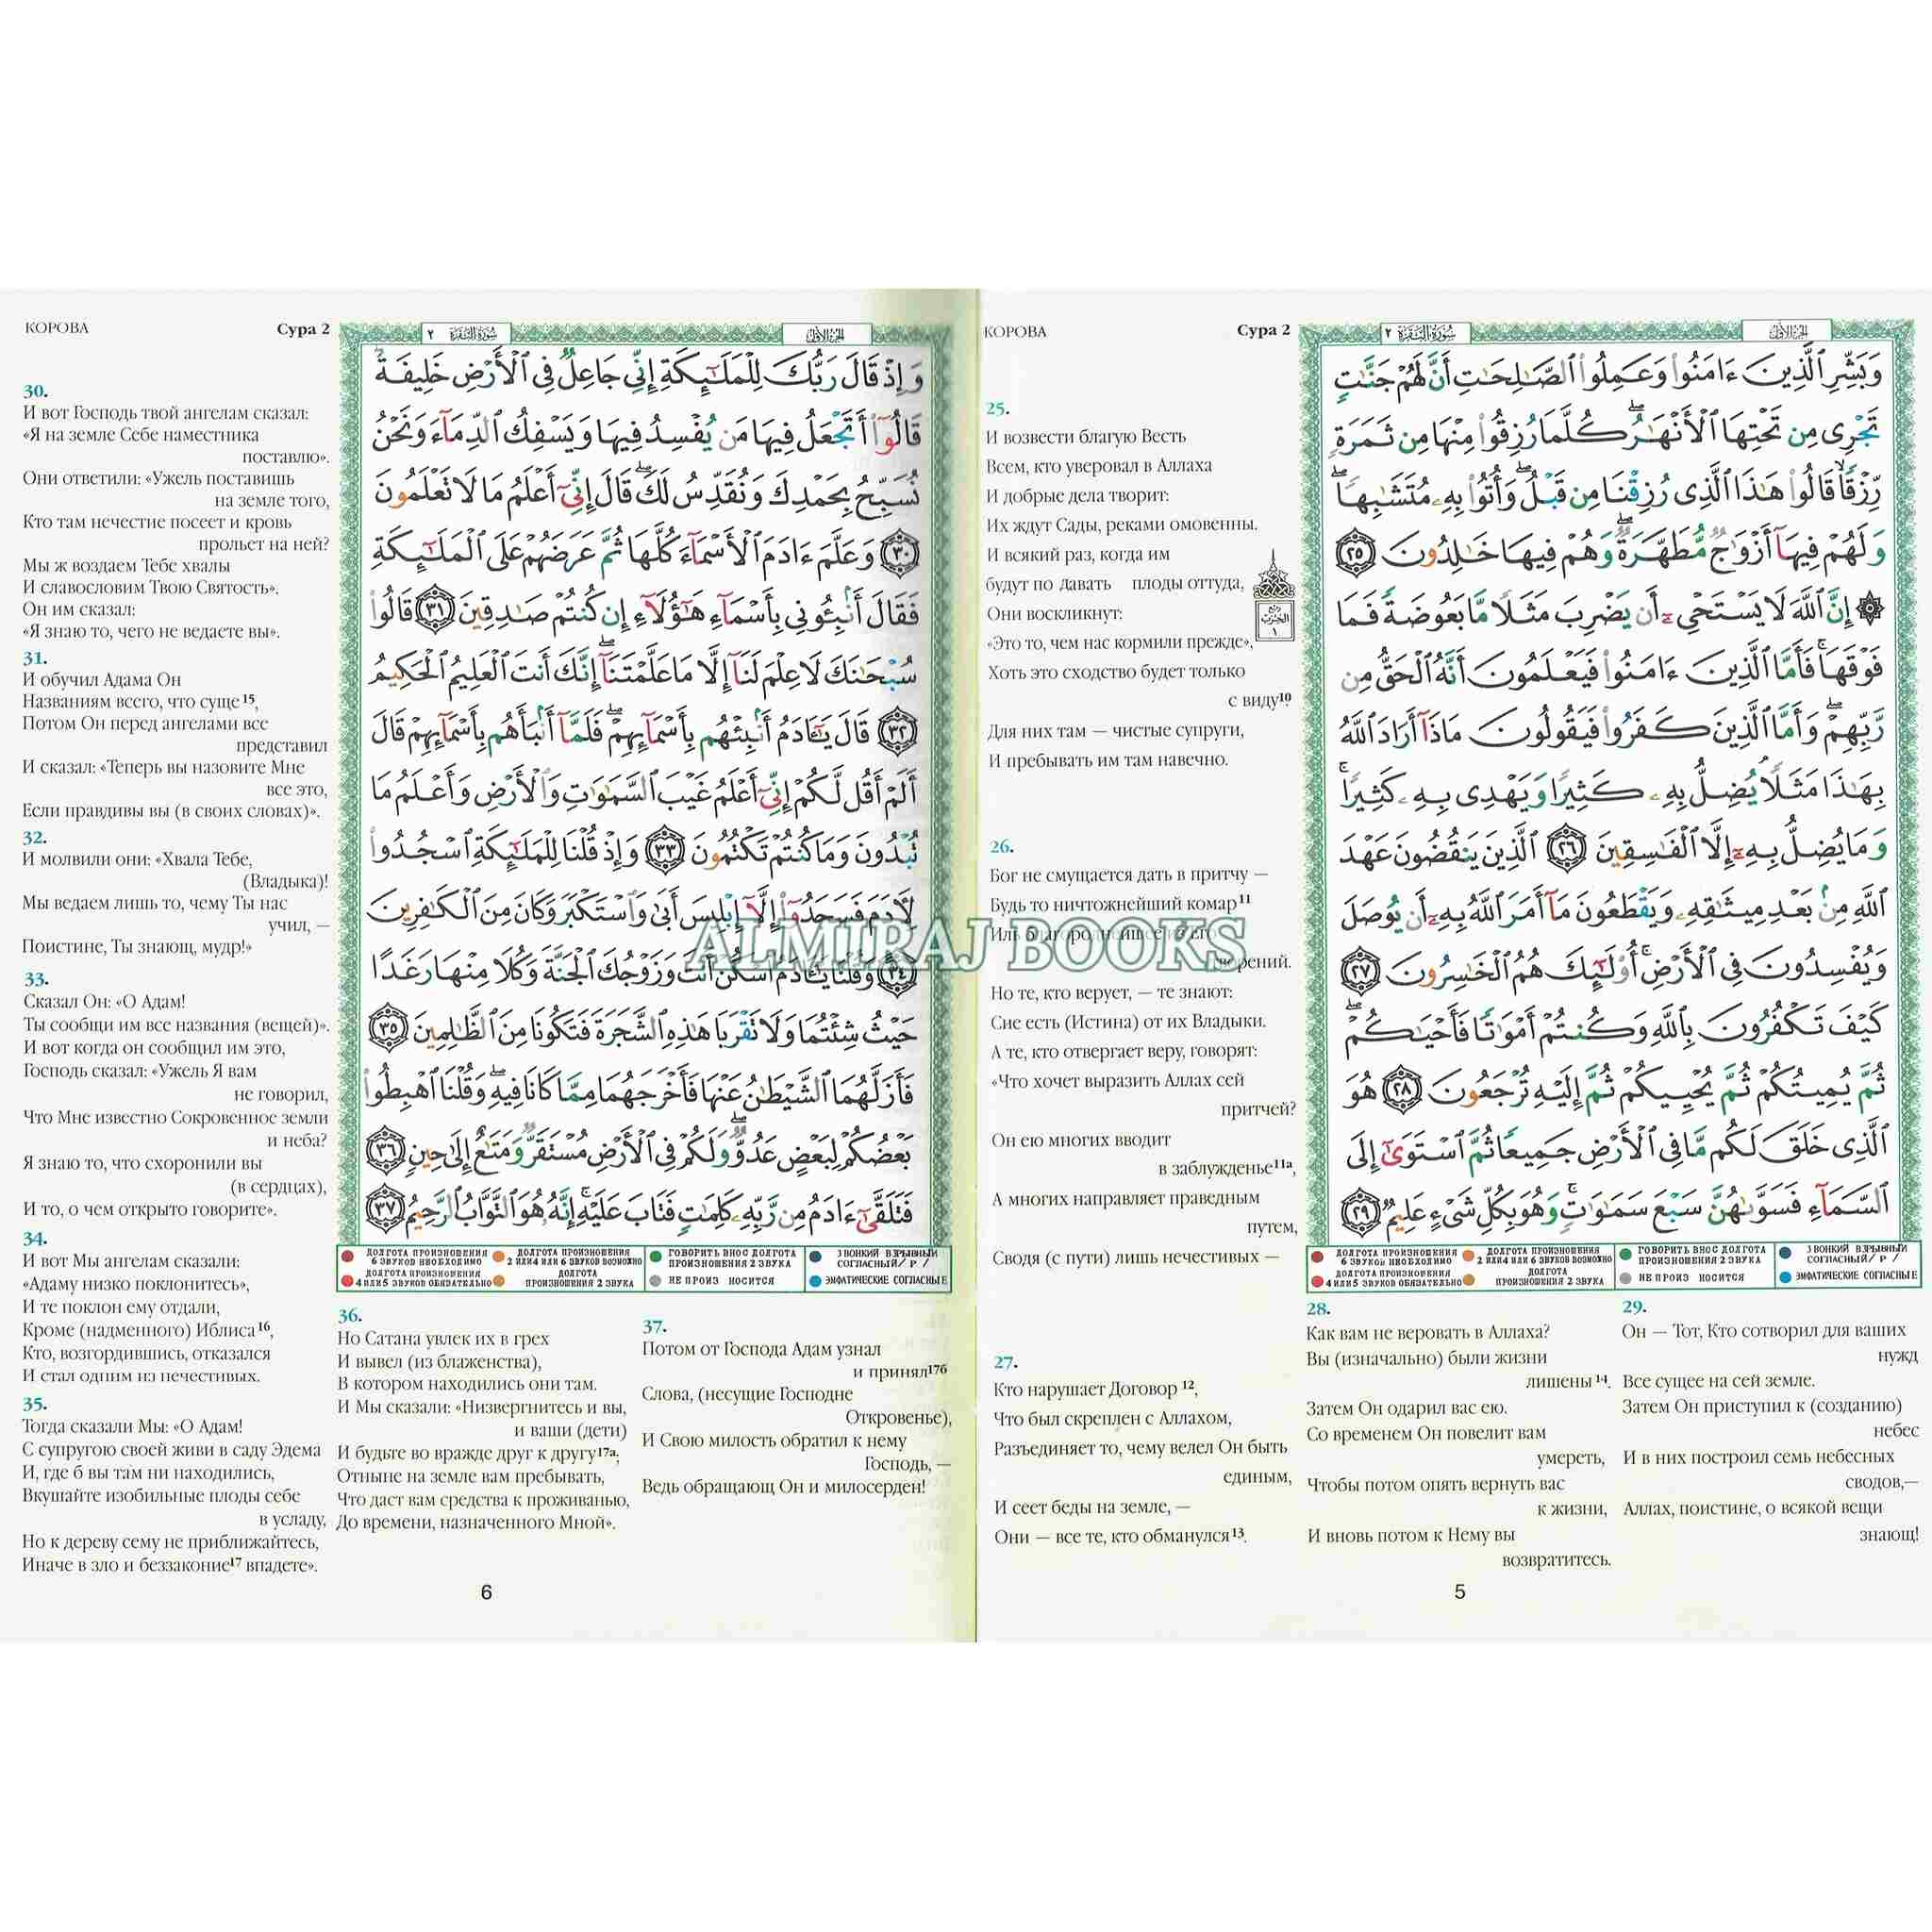 КОРОВА
Сура 2
سورة البقرة ٢
الجزء الأول
25.
И возвести благую Весть
Всем, кто уверовал в Аллаха
И добрые дела творит:
Их ждут Сады, реками омовенны.
И всякий раз, когда им
будут по давать плоды оттуда,
Они воскликнут:
«Это то, чем нас кормили прежде»,
Хоть это сходство будет только
с виду10
Для них там — чистые супруги,
И пребывать им там навечно.
26.
Бог не смущается дать в притчу —
Будь то ничтожнейший комар11
Иль благороднейшее из Его
творений.
Но те, кто верует, — те знают:
Сие есть (Истина) от их Владыки.
А те, кто отвергает веру, говорят:
«Что хочет выразить Аллах сей
притчей?
Он ею многих вводит
в заблужденье11а,
А многих направляет праведным
путем,
Сводя (с пути) лишь нечестивых —
27.
Кто нарушает Договор 12,
Что был скреплен с Аллахом,
Разъединяет то, чему велел Он быть
единым,
И сеет беды на земле, —
Они — все те, кто обманулся13.
وَبَشِّرِ ٱلَّذِينَ ءَامَنُوا۟ وَعَمِلُوا۟ ٱلصَّـٰلِحَـٰتِ أَنَّ لَهُمْ جَنَّـٰتٍ
تَجْرِى مِن تَحْتِهَا ٱلْأَنْهَـٰرُ ۖ كُلَّمَا رُزِقُوا۟ مِنْهَا مِن ثَمَرَةٍ
رِّزْقًا ۙ قَالُوا۟ هَـٰذَا ٱلَّذِى رُزِقْنَا مِن قَبْلُ ۖ وَأُتُوا۟ بِهِۦ مُتَشَـٰبِهًا ۖ
وَلَهُمْ فِيهَآ أَزْوَٰجٌ مُّطَهَّرَةٌ ۖ وَهُمْ فِيهَا خَـٰلِدُونَ ٢٥
۞ إِنَّ ٱللَّهَ لَا يَسْتَحْىِۦٓ أَن يَضْرِبَ مَثَلًا مَّا بَعُوضَةً فَمَا
فَوْقَهَا ۚ فَأَمَّا ٱلَّذِينَ ءَامَنُوا۟ فَيَعْلَمُونَ أَنَّهُ ٱلْحَقُّ مِن
رَّبِّهِمْ ۖ وَأَمَّا ٱلَّذِينَ كَفَرُوا۟ فَيَقُولُونَ مَاذَآ أَرَادَ ٱللَّهُ
بِهَـٰذَا مَثَلًا ۘ يُضِلُّ بِهِۦ كَثِيرًا وَيَهْدِى بِهِۦ كَثِيرًا ۚ
وَمَا يُضِلُّ بِهِۦٓ إِلَّا ٱلْفَـٰسِقِينَ ٢٦ ٱلَّذِينَ يَنقُضُونَ عَهْدَ
ٱللَّهِ مِنۢ بَعْدِ مِيثَـٰقِهِۦ وَيَقْطَعُونَ مَآ أَمَرَ ٱللَّهُ بِهِۦٓ أَن يُوصَلَ
وَيُفْسِدُونَ فِى ٱلْأَرْضِ ۚ أُو۟لَـٰٓئِكَ هُمُ ٱلْخَـٰسِرُونَ ٢٧
كَيْفَ تَكْفُرُونَ بِٱللَّهِ وَكُنتُمْ أَمْوَٰتًا فَأَحْيَـٰكُمْ ۖ
ثُمَّ يُمِيتُكُمْ ثُمَّ يُحْيِيكُمْ ثُمَّ إِلَيْهِ تُرْجَعُونَ ٢٨ هُوَ
ٱلَّذِى خَلَقَ لَكُم مَّا فِى ٱلْأَرْضِ جَمِيعًا ثُمَّ ٱسْتَوَىٰٓ إِلَى
ٱلسَّمَآءِ فَسَوَّىٰهُنَّ سَبْعَ سَمَـٰوَٰتٍ ۚ وَهُوَ بِكُلِّ شَىْءٍ عَلِيمٌ ٢٩
ДОЛГОТА ПРОИЗНОШЕНИЯ 6 ЗВУКОВ НЕОБХОДИМО
ДОЛГОТА ПРОИЗНОШЕНИЯ 2 ИЛИ 4 ИЛИ 6 ЗВУКОВ ВОЗМОЖНО
ГОВОРИТЬ В НОС ДОЛГОТА ПРОИЗНОШЕНИЯ 2 ЗВУКА
ЗВОНКИЙ ВЗРЫВНЫЙ СОГЛАСНЫЙ/ Р /
ДОЛГОТА ПРОИЗНОШЕНИЯ 4 ИЛИ 5 ЗВУКОВ ОБЯЗАТЕЛЬНО
ДОЛГОТА ПРОИЗНОШЕНИЯ 2 ЗВУКА
НЕ ПРОИЗ НОСИТСЯ
ЭМФАТИЧЕСКИЕ СОГЛАСНЫЕ
28.
Как вам не веровать в Аллаха?
Вы (изначально) были жизни
лишены14.
Затем Он одарил вас ею.
Со временем Он повелит вам
умереть,
Чтобы потом опять вернуть вас
к жизни,
И вновь потом к Нему вы
возвратитесь.
29.
Он — Тот, Кто сотворил для ваших
нужд
Все сущее на сей земле.
Затем Он приступил к (созданию)
небес
И в них построил семь небесных
сводов,—
Аллах, поистине, о всякой вещи
знающ!
5
КОРОВА
Сура 2
سورة البقرة ٢
الجزء الأول
30.
И вот Господь твой ангелам сказал:
«Я на земле Себе наместника
поставлю».
Они ответили: «Ужель поставишь
на земле того,
Кто там нечестие посеет и кровь
прольет на ней?
Мы ж воздаем Тебе хвалы
И славословим Твою Святость».
Он им сказал:
«Я знаю то, чего не ведаете вы».
31.
И обучил Адама Он
Названиям всего, что суще15,
Потом Он перед ангелами все
представил
И сказал: «Теперь вы назовите Мне
все это,
Если правдивы вы (в своих словах)».
32.
И молвили они: «Хвала Тебе,
(Владыка)!
Мы ведаем лишь то, чему Ты нас
учил, —
Поистине, Ты знающ, мудр!»
33.
Сказал Он: «О Адам!
Ты сообщи им все названия (вещей)».
И вот когда он сообщил им это,
Господь сказал: «Ужель Я вам
не говорил,
Что Мне известно Сокровенное земли
и неба?
Я знаю то, что схоронили вы
(в сердцах),
И то, о чем открыто говорите».
34.
И вот Мы ангелам сказали:
«Адаму низко поклонитесь»,
И те поклон ему отдали,
Кроме (надменного) Иблиса16,
Кто, возгордившись, отказался
И стал одним из нечестивых.
35.
Тогда сказали Мы: «О Адам!
С супругою своей живи в саду Эдема
И, где б вы там ни находились,
Вкушайте изобильные плоды себе
в усладу,
Но к дереву сему не приближайтесь,
Иначе в зло и беззаконие17 впадете».
وَإِذْ قَالَ رَبُّكَ لِلْمَلَـٰٓئِكَةِ إِنِّى جَاعِلٌ فِى ٱلْأَرْضِ خَلِيفَةً ۖ
قَالُوٓا۟ أَتَجْعَلُ فِيهَا مَن يُفْسِدُ فِيهَا وَيَسْفِكُ ٱلدِّمَآءَ وَنَحْنُ
نُسَبِّحُ بِحَمْدِكَ وَنُقَدِّسُ لَكَ ۖ قَالَ إِنِّىٓ أَعْلَمُ مَا لَا تَعْلَمُونَ
٣٠ وَعَلَّمَ ءَادَمَ ٱلْأَسْمَآءَ كُلَّهَا ثُمَّ عَرَضَهُمْ عَلَى ٱلْمَلَـٰٓئِكَةِ
فَقَالَ أَنۢبِـُٔونِى بِأَسْمَآءِ هَـٰٓؤُلَآءِ إِن كُنتُمْ صَـٰدِقِينَ ٣١ قَالُوا۟
سُبْحَـٰنَكَ لَا عِلْمَ لَنَآ إِلَّا مَا عَلَّمْتَنَآ ۖ إِنَّكَ أَنتَ ٱلْعَلِيمُ ٱلْحَكِيمُ
٣٢ قَالَ يَـٰٓـَٔادَمُ أَنۢبِئْهُم بِأَسْمَآئِهِمْ ۖ فَلَمَّآ أَنۢبَأَهُم بِأَسْمَآئِهِمْ قَالَ
أَلَمْ أَقُل لَّكُمْ إِنِّىٓ أَعْلَمُ غَيْبَ ٱلسَّمَـٰوَٰتِ وَٱلْأَرْضِ وَأَعْلَمُ مَا
تُبْدُونَ وَمَا كُنتُمْ تَكْتُمُونَ ٣٣ وَإِذْ قُلْنَا لِلْمَلَـٰٓئِكَةِ ٱسْجُدُوا۟
لِـَٔادَمَ فَسَجَدُوٓا۟ إِلَّآ إِبْلِيسَ أَبَىٰ وَٱسْتَكْبَرَ وَكَانَ مِنَ ٱلْكَـٰفِرِينَ
٣٤ وَقُلْنَا يَـٰٓـَٔادَمُ ٱسْكُنْ أَنتَ وَزَوْجُكَ ٱلْجَنَّةَ وَكُلَا مِنْهَا رَغَدًا
حَيْثُ شِئْتُمَا وَلَا تَقْرَبَا هَـٰذِهِ ٱلشَّجَرَةَ فَتَكُونَا مِنَ ٱلظَّـٰلِمِينَ ٣٥
فَأَزَلَّهُمَا ٱلشَّيْطَـٰنُ عَنْهَا فَأَخْرَجَهُمَا مِمَّا كَانَا فِيهِ ۖ وَقُلْنَا ٱهْبِطُوا۟
بَعْضُكُمْ لِبَعْضٍ عَدُوٌّ ۖ وَلَكُمْ فِى ٱلْأَرْضِ مُسْتَقَرٌّ وَمَتَـٰعٌ إِلَىٰ حِينٍ ٣٦
فَتَلَقَّىٰٓ ءَادَمُ مِن رَّبِّهِۦ كَلِمَـٰتٍ فَتَابَ عَلَيْهِ ۚ إِنَّهُۥ هُوَ ٱلتَّوَّابُ ٱلرَّحِيمُ ٣٧
ДОЛГОТА ПРОИЗНОШЕНИЯ 6 ЗВУКОВ НЕОБХОДИМО
ДОЛГОТА ПРОИЗНОШЕНИЯ 2 ИЛИ 4 ИЛИ 6 ЗВУКОВ ВОЗМОЖНО
ГОВОРИТЬ В НОС ДОЛГОТА ПРОИЗНОШЕНИЯ 2 ЗВУКА
ЗВОНКИЙ ВЗРЫВНЫЙ СОГЛАСНЫЙ/ Р /
ДОЛГОТА ПРОИЗНОШЕНИЯ 4 ИЛИ 5 ЗВУКОВ ОБЯЗАТЕЛЬНО
ДОЛГОТА ПРОИЗНОШЕНИЯ 2 ЗВУКА
НЕ ПРОИЗ НОСИТСЯ
ЭМФАТИЧЕСКИЕ СОГЛАСНЫЕ
36.
Но Сатана увлек их в грех
И вывел (из блаженства),
В котором находились они там.
И Мы сказали: «Низвергнитесь и вы,
и ваши (дети)
И будьте во вражде друг к другу17а;
Отныне на земле вам пребывать,
Что даст вам средства к проживанью,
До времени, назначенного Мной».
37.
Потом от Господа Адам узнал
и принял17б
Слова, (несущие Господне
Откровенье),
И Свою милость обратил к нему
Господь, —
Ведь обращающ Он и милосерден!
6
ALMIRAJ BOOKS